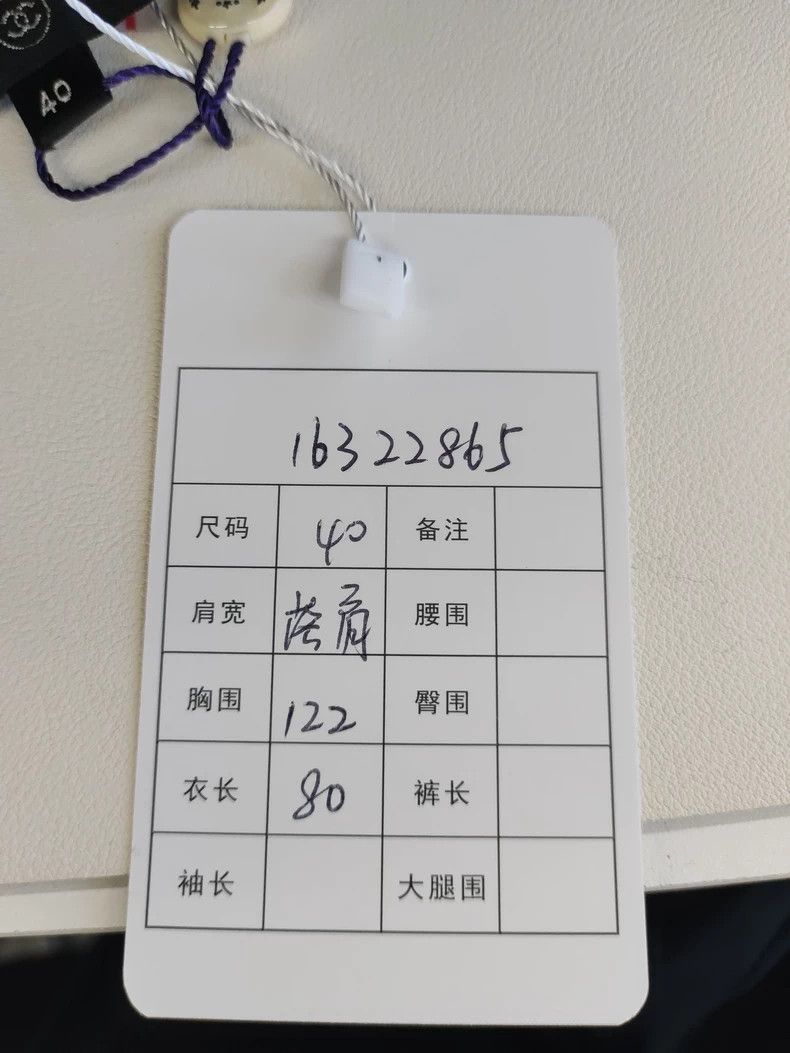 40
16322865
尺码 40 备注
肩宽 挎肩 腰围
胸围 122 臀围
衣长 80 裤长
袖长 大腿围